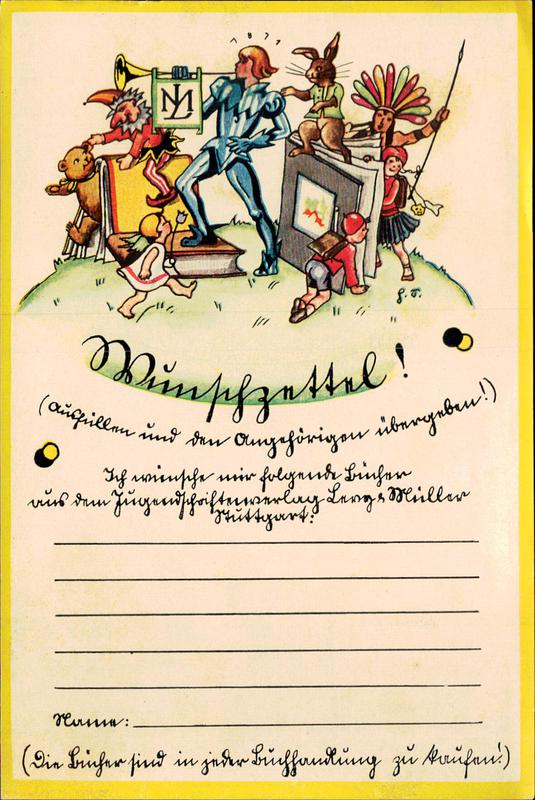 1871
LM
G. S.
Wunschzettel!
(Ausfüllen und den Angehörigen übergeben!)
Ich wünsche mir folgende Bücher
aus dem Jugendschriftenverlag Levy & Müller
Stuttgart:
Name:
(Die Bücher sind in jeder Buchhandlung zu kaufen!)